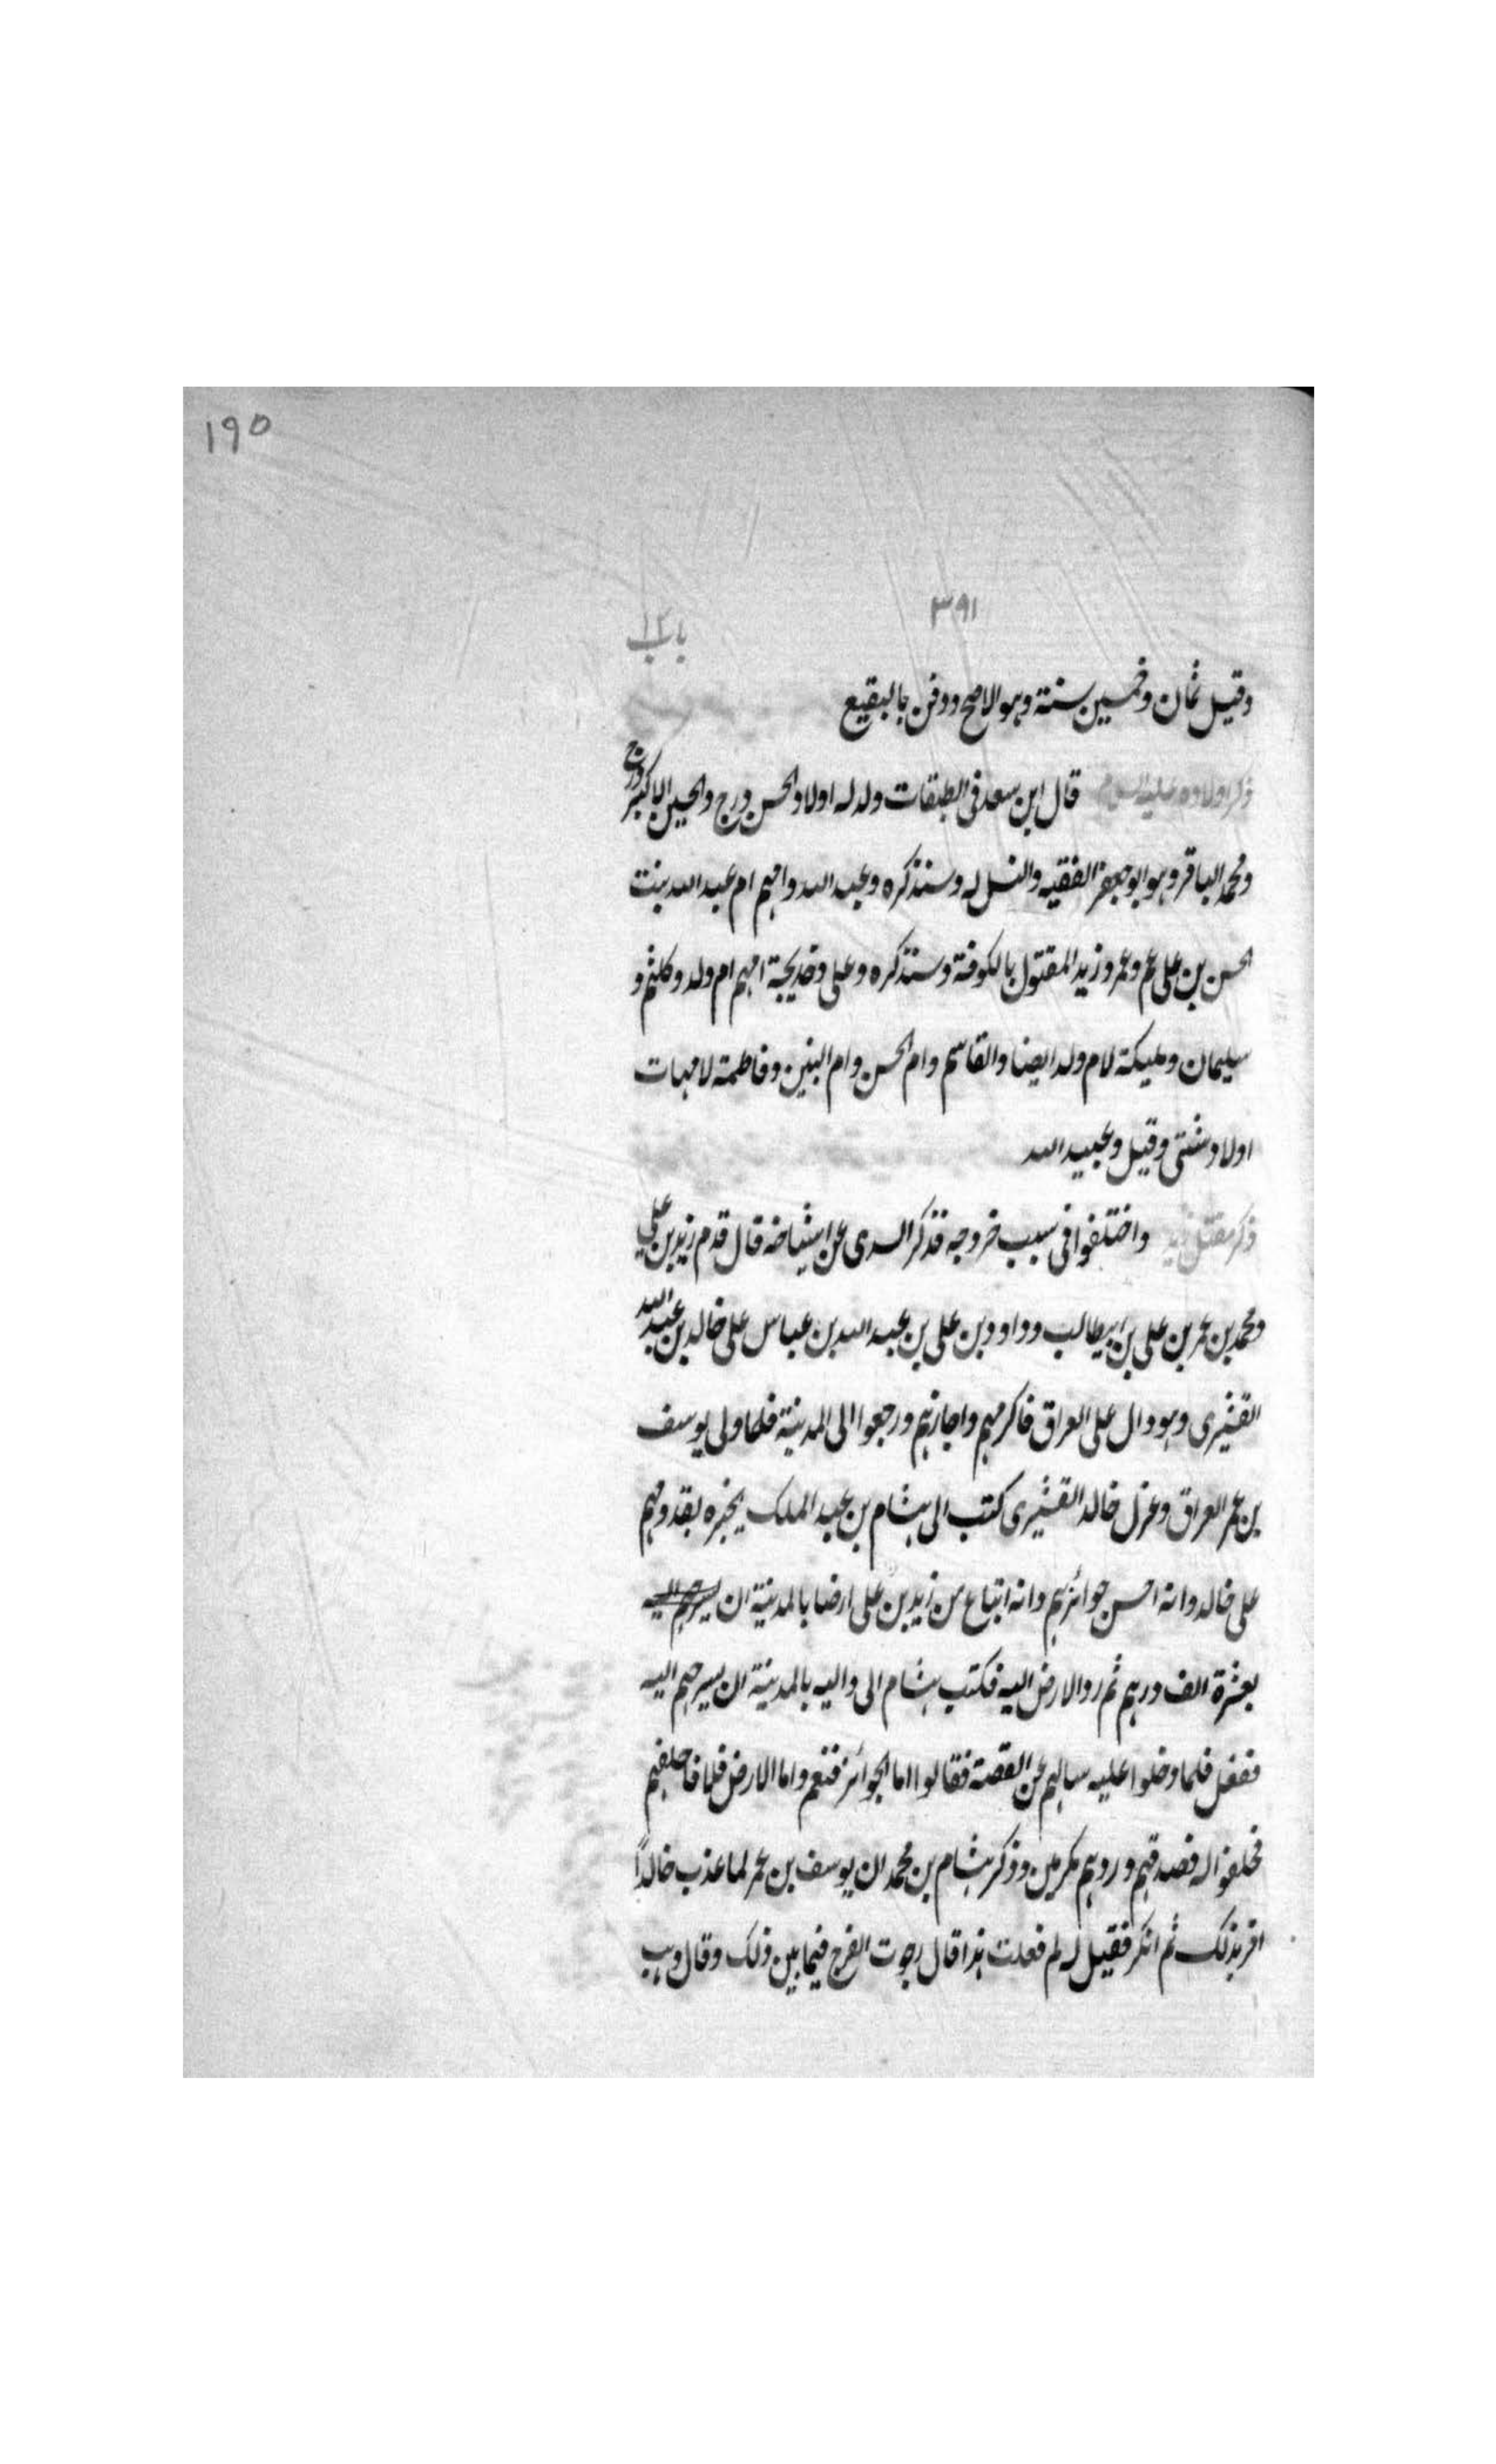 ١٩٥
٣٩١
باب ١٢
وقيل ثمان وخمسين سنة وهو الاصح ودفن بالبقيع
ذكر اولاده عليه السلام قال ابن سعد فى الطبقات ولد له اولاد الحسن درج والحسين الاكبر درج
ومحمد الباقر وهو ابو جعفر الفقيه والنسل له وسنذكره وعبد الله وامهم ام عبد الله بنت
الحسن بن على عم وعمر وزيد المقتول بالكوفة وسنذكره وعلى وخديجة امهم ام ولد وكلثم و
سليمان ومليكة لام ولد ايضا والقاسم وام الحسن وام البنين وفاطمة لامهات
اولاد شتى وقيل وعبيد الله
ذكر مقتل زيد واختلفوا فى سبب خروجه فذكر السدى عن اشياخه قال قدم زيد بن على
ومحمد بن عمر بن على بن ابيطالب وداود بن على بن عبد الله بن عباس على خالد بن عبد الله
القشيرى وهو وال على العراق فاكرمهم واجازهم ورجعوا الى المدينة فلما ولى يوسف
بن عمر العراق وعزل خالد القشيرى كتب الى هشام بن عبد الملك يخبره بقدومهم
على خالد وانه احسن جوائزهم وانه ابتاع من زيد بن على ارضا بالمدينة ان يسرحهم اليه
بعشرة الف درهم ثم رد الارض اليه فكتب هشام الى واليه بالمدينة ان يسرحهم اليه
ففعل فلما دخلوا عليه سالهم عن القصة فقالوا اما الجوائز فنعم واما الارض فلا فاحلفهم
فحلفوا له فصدقهم وردهم مكرمين وذكر هشام بن محمد ان يوسف بن عمر لما عذب خالداً
اقر بذلك ثم انكر فقيل له لم فعلت هذا قال رجوت الفرج فيما بين ذلك وقال وهب